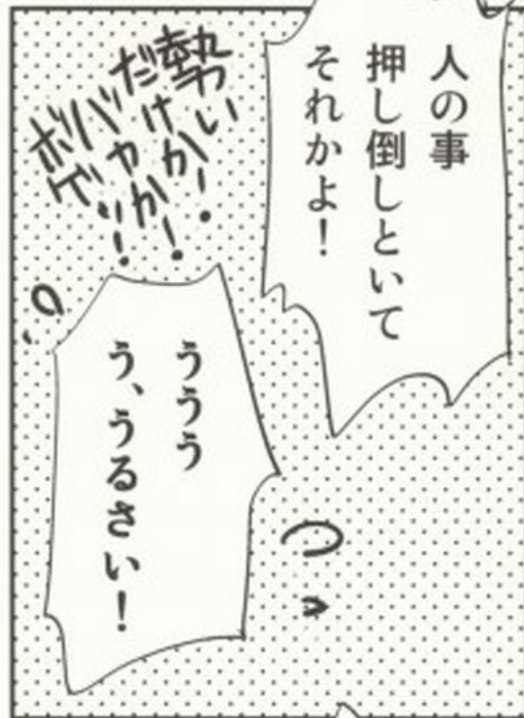 人の事
押し倒しといて
それかよ！
勢い
だけか！
バカか！
ボケッ！
ううう
う、うるさい！